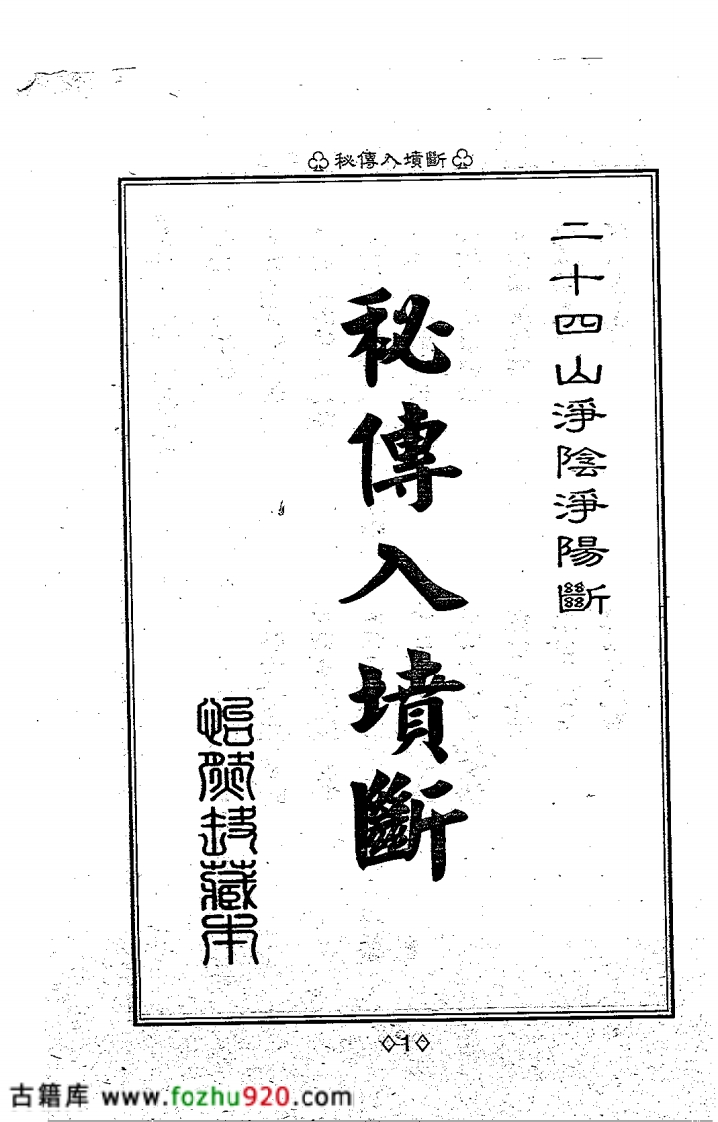 秘傳入墳斷
二十四山淨陰淨陽斷
秘傳入墳斷
藏本
1
古籍库 www.fozhu920.com